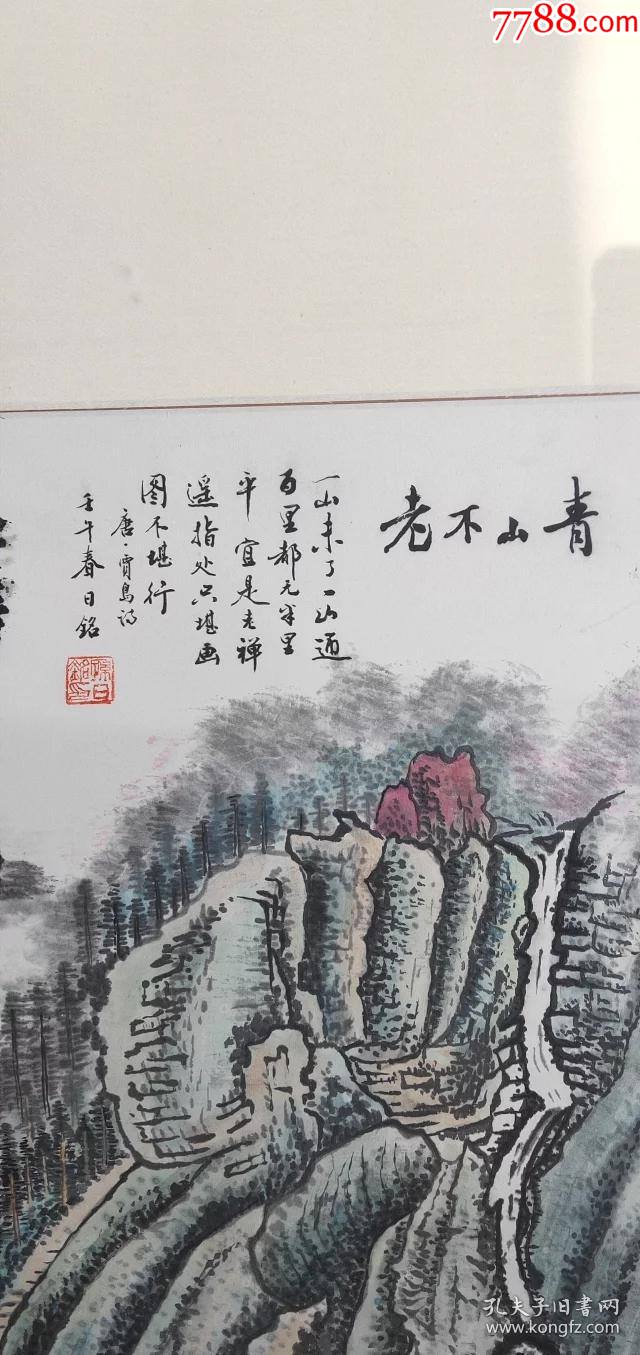 7788.com
青山不老
一山未了一山迎
百里都无半里
平宜是老禅
遥指处只堪画
图不堪行
唐·贾岛诗
壬午春日铭
孔夫子旧书网
www.kongfz.com